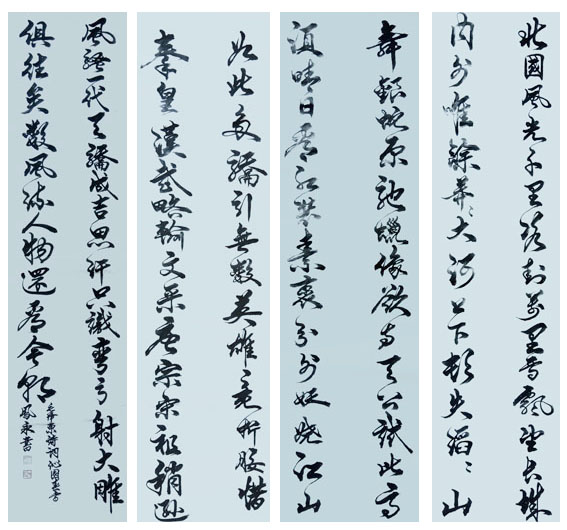 北國風光千里冰封萬里雪飄望長城
内外唯餘莽々大河上下頓失滔々山
舞銀蛇原馳蠟像欲與天公試比高
須晴日看紅裝素裹分外妖嬈江山
如此多驕引無數英雄竞折腰惜
秦皇漢武略輸文采唐宗宋祖稍遜
風騷一代天驕成吉思汗只識彎弓射大雕
俱往矣數風流人物還看今朝
毛澤東詩詞沁園春雪
書